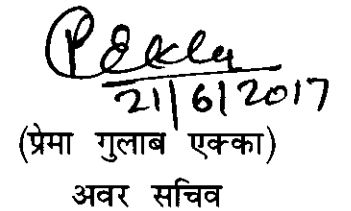 PEkka
21/6/2017
(प्रेमा गुलाब एक्का)
अवर सचिव